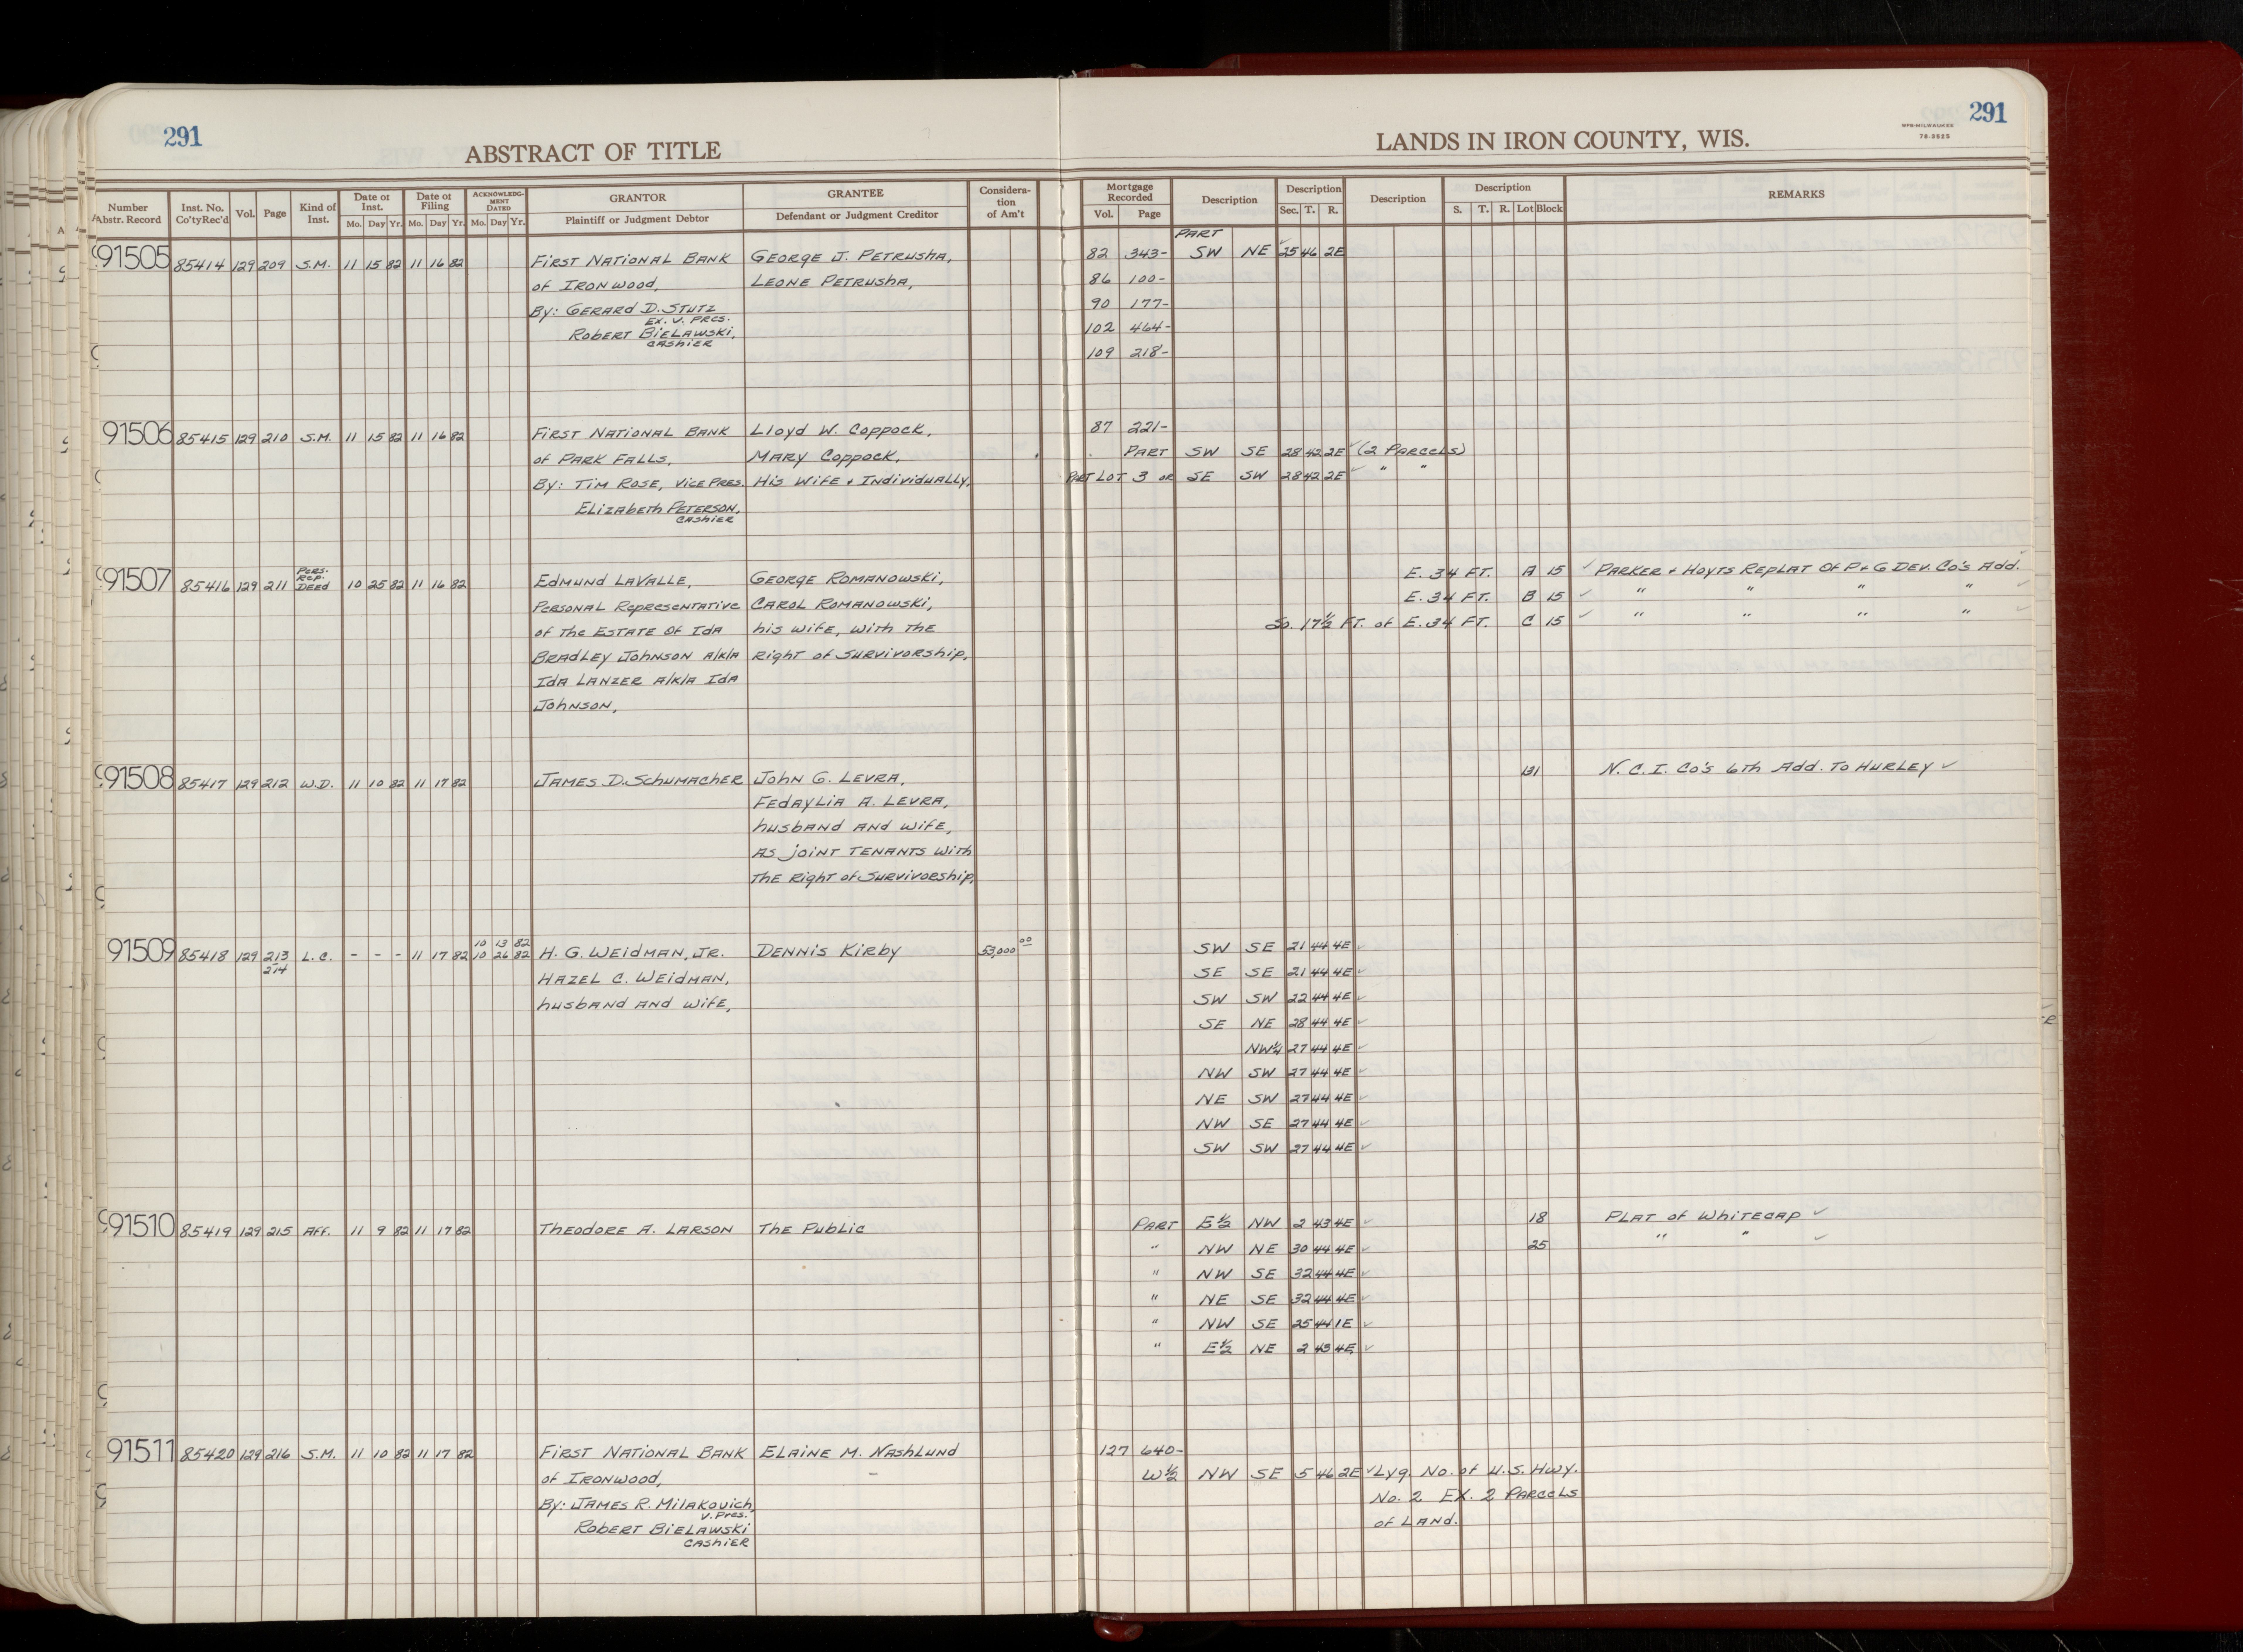 291
291
WPB-MILWAUKEE
78-3525
ABSTRACT OF TITLE
LANDS IN IRON COUNTY, WIS.
Number Abstr. Record | Inst. No. Co'ty Rec'd | Vol. | Page | Kind of Inst. | Date of Inst. Mo. Day Yr. | Date of Filing Mo. Day Yr. | ACKNOWLEDG-MENT DATED Mo. Day Yr. | GRANTOR Plaintiff or Judgment Debtor | GRANTEE Defendant or Judgment Creditor | Considera-tion of Am't | Mortgage Recorded Vol. Page | Description | Description Sec. T. R. | Description | Description S. T. R. Lot Block | REMARKS
PART
91505 85414 129 209 S.M. 11 15 82 11 16 82 First National Bank George J. Petrusha, 82 343- SW NE 25 46 2E
of Ironwood, Leone Petrusha, 86 100-
By: Gerard D. Stutz 90 177-
Ex. V. Pres.
Robert Bielawski, 102 464-
Cashier
109 218-
91506 85415 129 210 S.M. 11 15 82 11 16 82 First National Bank Lloyd W. Coppock, 87 221-
of Park Falls, Mary Coppock, PART SW SE 28 42 2E ✓ (2 Parcels)
By: Tim Rose, Vice Pres. His Wife + Individually, PART LOT 3 or SE SW 28 42 2E ✓ " "
Elizabeth Peterson,
Cashier
91507 85416 129 211 Pers. Rep. Deed 10 25 82 11 16 82 Edmund LaValle, George Romanowski, E. 34 FT. A 15 ✓ Parker + Hoyts Replat of P+G Dev. Co's Add.
Personal Representative Carol Romanowski, E. 34 FT. B 15 ✓ " " " " ✓
of the Estate of Ida his wife, with the So. 17½ FT. of E. 34 FT. C 15 ✓ " " " " ✓
Bradley Johnson a/k/a Right of Survivorship,
Ida Lanzer a/k/a Ida
Johnson,
91508 85417 129 212 W.D. 11 10 82 11 17 82 James D. Schumacher John G. Levra, 131 N. C. I. Co's 6th Add. To Hurley ✓
Fedaylia A. Levra,
husband and wife,
as joint tenants with
the Right of Survivorship,
91509 85418 129 213 214 L.C. - - - 11 17 82 10 13 82 10 26 82 H. G. Weidman, Jr. Dennis Kirby 53,000 00 SW SE 21 44 4E ✓
Hazel C. Weidman, SE SE 21 44 4E ✓
husband and wife, SW SW 22 44 4E ✓
SE NE 28 44 4E ✓
NW¼ 27 44 4E ✓
NW SW 27 44 4E ✓
NE SW 27 44 4E ✓
NW SE 27 44 4E ✓
SW SW 27 44 4E ✓
91510 85419 129 215 Aff. 11 9 82 11 17 82 Theodore A. Larson The Public PART E½ NW 2 43 4E ✓ 18 Plat of Whitecap ✓
" NW NE 30 44 4E ✓ 25 " " ✓
" NW SE 32 44 4E ✓
" NE SE 32 44 4E ✓
" NW SE 25 44 1E ✓
" E½ NE 2 43 4E ✓
91511 85420 129 216 S.M. 11 10 82 11 17 82 First National Bank Elaine M. Nashlund 127 640-
of Ironwood, W½ NW SE 5 46 2E ✓ Lyg. No. of U.S. Hwy.
By: James R. Milakovich No. 2 EX. 2 Parcels
V. Pres.
Robert Bielawski of Land.
Cashier